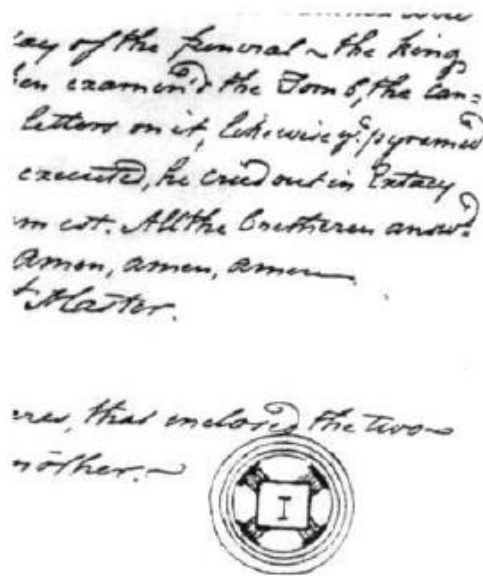 ay of the funeral ~ the King
en examin'd the Tomb, the can=
letters on it, likewise ye. pyramid
executed, he cried out in Extacy
m est. All the Bretheren answd.
amen, amen, amen
t Master.
eres, that enclosed the two
nother. ~
I